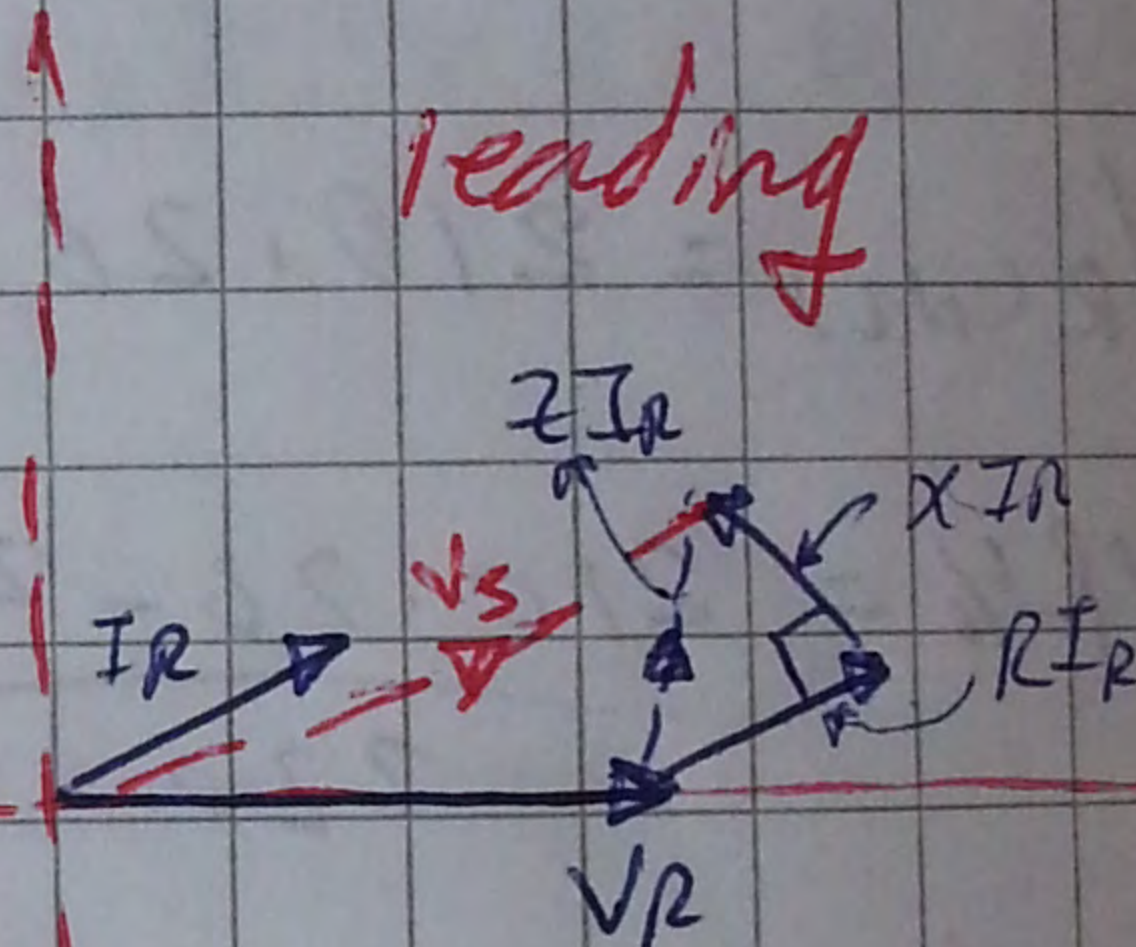 leading
ZIR
XIR
Vs
IR
RIR
VR